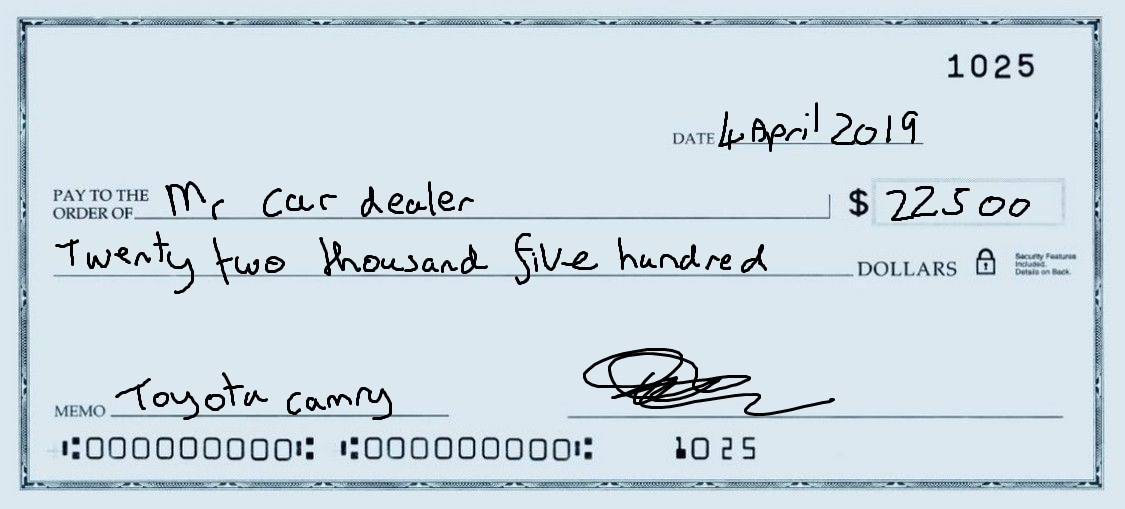 1025
DATE 4 April 2019
PAY TO THE ORDER OF Mr car dealer $ 22500
Twenty two thousand five hundred DOLLARS Security Features Included. Details on Back.
MEMO Toyota camry
⑆000000000⑆ ⑆000000000⑆ 1025